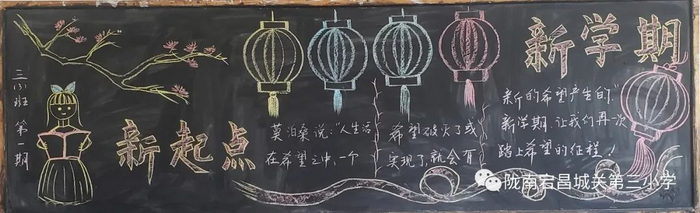 三(3)班 第一期
新起点
莫泊桑说:“人生活
在希望之中,一个
希望破灭了或
实现了,就会有
新学期
新的希望产生的”
新学期,让我们再次
踏上希望的征程!
陇南宕昌城关第三小学